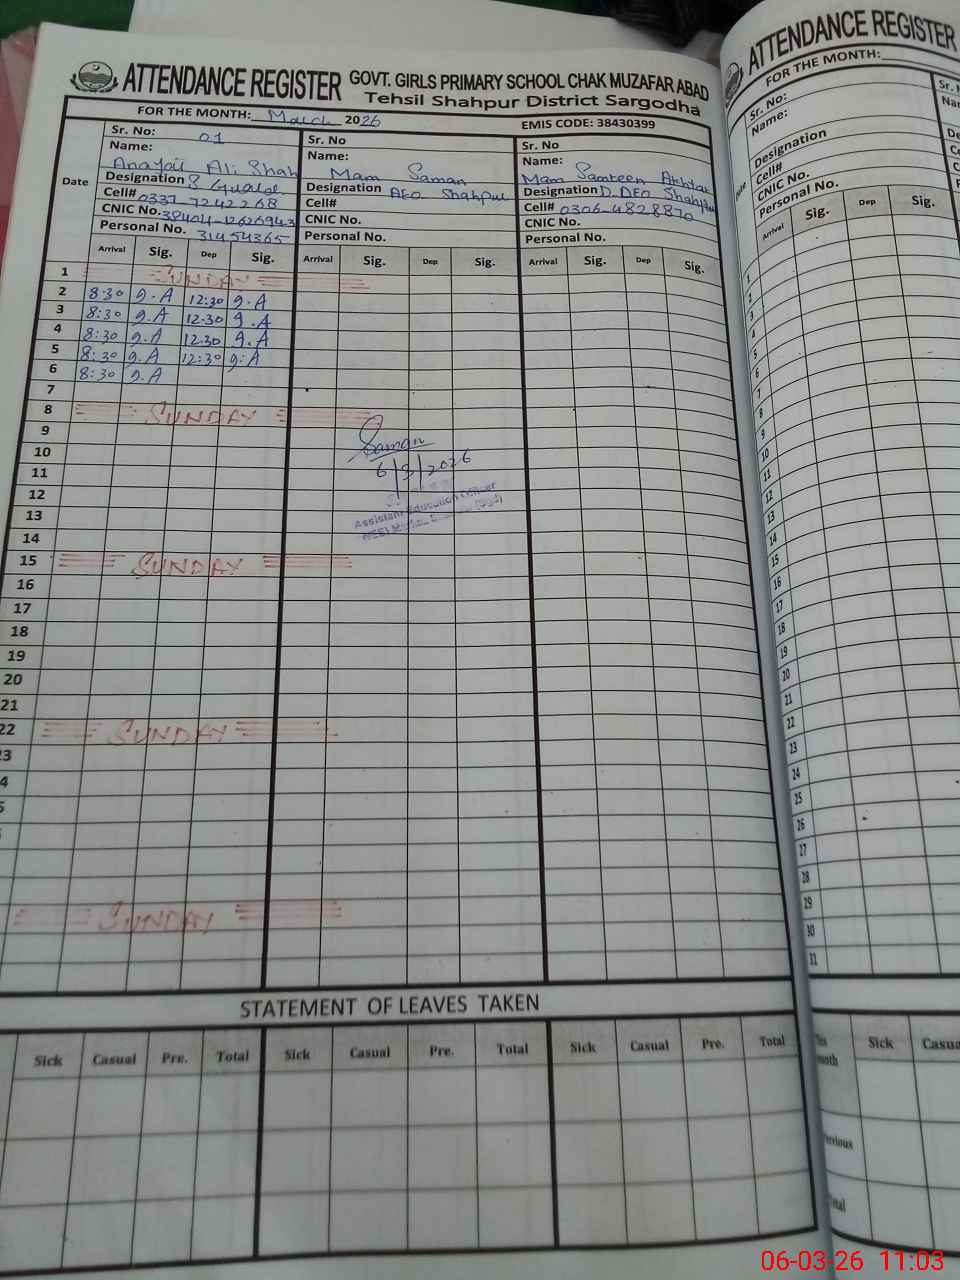 ATTENDANCE REGISTER GOVT. GIRLS PRIMARY SCHOOL CHAK MUZAFAR ABAD
Tehsil Shahpur District Sargodha
FOR THE MONTH: March 2026 EMIS CODE: 38430399
Sr. No: 01 Sr. No Sr. No
Name: Name: Name:
Ali Shah Mam Saman Mam Samreen Akhtar
Date Designation S Guard Designation AEO Shahpur Designation D.DEO Shahpur
Cell# 0337-7242268 Cell# Cell# 0306-4828870
CNIC No. CNIC No. CNIC No.
Personal No. 31454365 Personal No. Personal No.
Arrival Sig. Dep Sig. Arrival Sig. Dep Sig. Arrival Sig. Dep Sig.
1 SUNDAY
2 8:30 g.A 12:30 g.A
3 8:30 g.A 12:30 g.A
4 8:30 g.A 12:30 g.A
5 8:30 g.A 12:30 g.A
6 8:30 g.A
7
8 SUNDAY
9
Saman
10
6/3/2026
11
12
Assistant Education Officer
13
14
15 SUNDAY
16
17
18
19
20
21
22 SUNDAY
23
4
5
SUNDAY
STATEMENT OF LEAVES TAKEN
Sick Casual Pre. Total Sick Casual Pre. Total Sick Casual Pre. Total
ATTENDANCE REGISTER
FOR THE MONTH:
Sr. No:
Name:
Designation
Cell#
CNIC No.
Personal No.
Arrival Sig. Dep Sig.
1
2
3
4
5
6
7
8
9
10
11
12
13
14
15
16
17
18
19
20
21
22
23
24
25
26
27
28
29
30
31
month Sick Casua
06-03-26 11:03